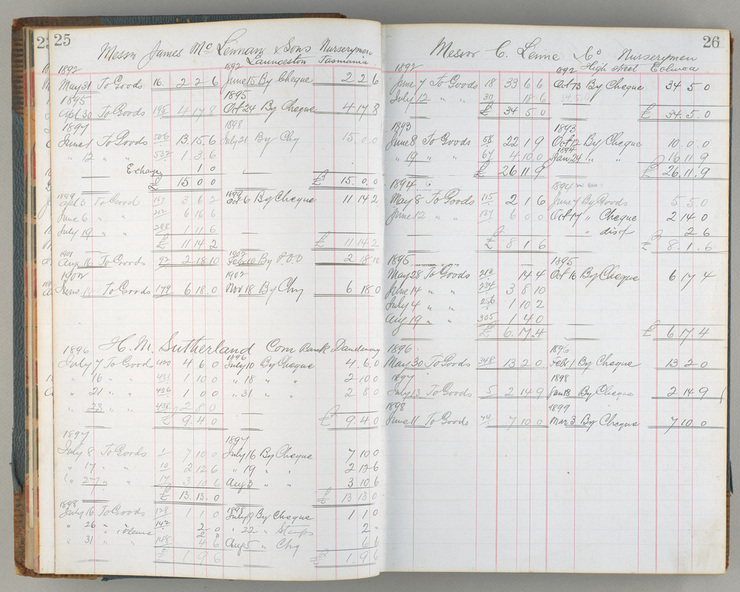 25
Messrs James McLennan & Sons Nurserymen
Launceston Tasmania
1892 1892
May 31 To Goods 16 2 2 6 June 15 By Cheque 2 2 6
1895 1895
Apl 30 To Goods 4 17 8 Oct 24 By Cheque 4 17 8
1897 1898
June 1 To Goods 13 15 6 July 21 By Chq 15 0 0
" 12 " " 1 3 6
Exchange 1 0
£ 15 0 0 £ 15 0 0
1899 1899
To Goods 3 6 2 Oct 6 By Cheque 11 14 2
June 6 " " 6 16 6
July 19 " " 1 11 6
£ 11 14 2 £ 11 14 2
Aug To Goods 2 18 10 Feb 10 By P.O.O 2 18 10
1902 1902
June To Goods 179 6 18 0 Nov 18 By Chq 6 18 0
H. M. Sutherland Com Bank Dandenong
1896 1896
July 7 To Goods 4 6 0 July 10 By Cheque 4 6 0
" 16 " " 1 10 0 " 18 " " 2 10 0
" 21 " " 1 0 0 " 31 " " 2 8 0
" 23 " " 2 8 0
£ 9 4 0 £ 9 4 0
1897 1897
July 8 To Goods 7 10 0 July 16 By Cheque 7 10 0
" 17 " " 10 2 12 6 " 19 " " 2 12 6
" 27 " " 3 10 6 Aug 3 " " 3 10 6
£ 13 13 0 £ 13 13 0
1898 1898
July 16 To Goods 128 1 1 0 July 9 By Cheque 1 1 0
" 26 " 2 0 " 22 " Stamps 2 "
" 31 " " 6 6 Aug 5 " Chq 6 6
£ 1 9 6 £ 1 9 6
26
Messrs C. Lenne & Co Nurserymen
High Street
1892 1892
June 7 To Goods 18 33 6 6 Oct 13 By Cheque 34 5 0
July 12 " " 30 18 6
£ 34 5 0 £ 34 5 0
1893 1893
June 8 To Goods 58 22 1 9 Oct 12 By Cheque 10 0 0
" 19 " " 67 4 10 0 Jan 24 " " 16 11 9
£ 26 11 9 £ 26 11 9
1894 1894
May 8 To Goods 115 2 1 6 June 7 By Goods 5 5 0
June 12 " " 137 6 0 0 Oct 17 " Cheque 2 14 0
" disct 2 6
£ 8 1 6 £ 8 1 6
1895 1895
May 28 To Goods 213 14 4 Oct 16 By Cheque 6 17 4
June 14 " " 234 3 8 10
July 4 " " 256 1 10 2
Aug 19 " " 305 1 4 0
£ 6 17 4 £ 6 17 4
1896
May 30 To Goods 348 13 2 0 Feb 1 By Cheque 13 2 0
1897 1898
July 13 To Goods 5 2 14 9 Jan 18 By Cheque 2 14 9
1898 1899
June 11 To Goods 7 10 0 Mar 3 By Cheque 7 10 0